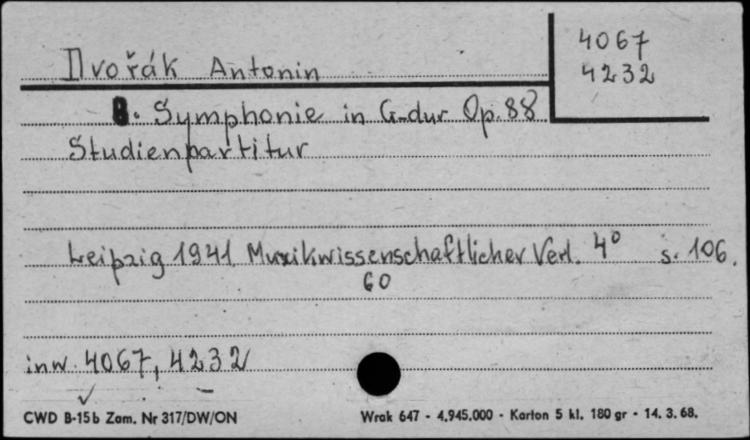 4067
4232
Dvořák Antonin
8. Symphonie in G-dur Op. 88
Studienpartitur
Leipzig 1941 Musikwissenschaftlicher Verl. 4° s. 106.
60
inw. 4067, 4232
CWD B-15b Zam. Nr 317/DW/ON
Wrak 647 - 4.945.000 - Karton 5 kl. 180 gr - 14. 3. 68.